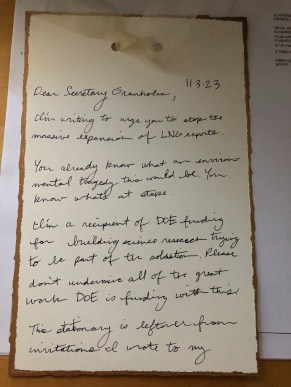 11.3.23
Dear Secretary Granholm,
I'm writing to urge you to stop the
massive expansion of LNG exports.
You already know what an environ-
mental tragedy this would be. You
know what's at stake.
I'm a recipient of DOE funding
for building science research trying
to be part of the solution. Please
don't undermine all of the great
work DOE is funding with this!
The stationary is leftover from
invitations I wrote to my